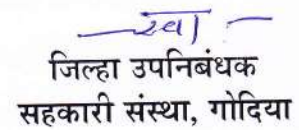 जिल्हा उपनिबंधक
सहकारी संस्था, गोदिया